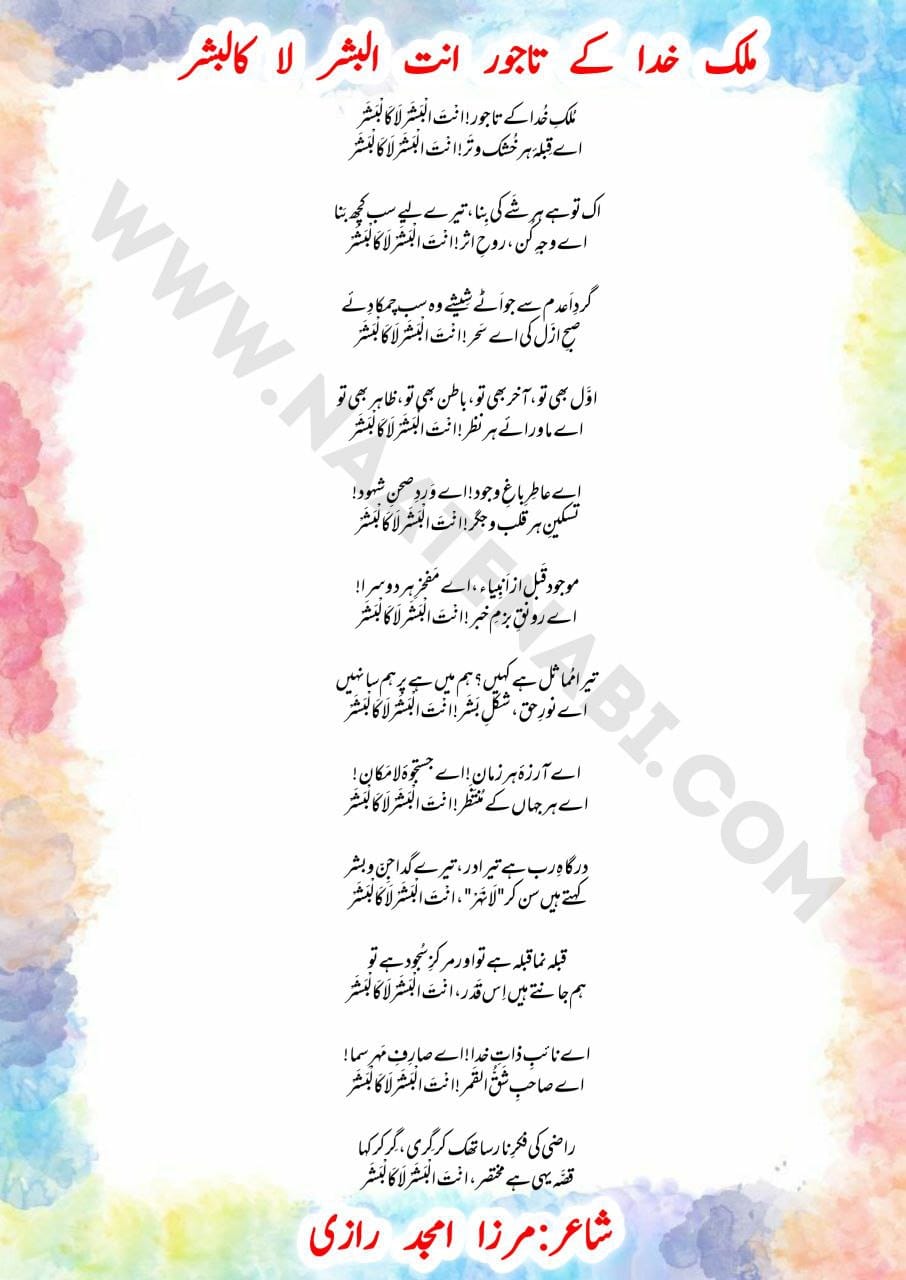 ملک خدا کے تاجور انت البشر لا کالبشر
مُلکِ خُدا کے تاجور! انْتَ الْبَشَرْ لَا کَالْبَشَرْ
اے قِبلۂ ہر خُشک و تَر! انْتَ الْبَشَرْ لَا کَالْبَشَرْ
اک تو ہے ہر شَے کی بِنا، تیرے لیے سب کچھ بَنا
اے وجہِ کُن، روحِ اثر! انْتَ الْبَشَرْ لَا کَالْبَشَرْ
گردِ اَعدم سے جو اَٹے شِیشے وہ سب چمکا دِئے
صبحِ ازَل کی اے سَحر! انْتَ الْبَشَرْ لَا کَالْبَشَرْ
اوّل بھی تو، آخر بھی تو، باطن بھی تو، ظاہر بھی تو
اے ماورائے ہر نظر! انْتَ الْبَشَرْ لَا کَالْبَشَرْ
اے عاطرِ باغِ وجود! اے وَردِ صحنِ شہود!
تسکینِ ہر قلب و جگر! انْتَ الْبَشَرْ لَا کَالْبَشَرْ
موجود قَبل از اَنبِیاء، اے مَفخرِ ہر دوسرا!
اے رونقِ بزمِ خبر! انْتَ الْبَشَرْ لَا کَالْبَشَرْ
تیرا مُماثل ہے کہیں؟ ہم میں ہے پر ہم سا نہیں
اے نورِ حق، شکلِ بَشَر! انْتَ الْبَشَرْ لَا کَالْبَشَرْ
اے آرزوۂ ہر زمان! اے جستجوۂ لامَکان!
اے ہر جہاں کے مُنتَظَر! انْتَ الْبَشَرْ لَا کَالْبَشَرْ
درگاہِ رب ہے تیرا در، تیرے گدا جِنّ و بشر
کہتے ہیں سن کر "لَا تَنْہَرْ"، انْتَ الْبَشَرْ لَا کَالْبَشَرْ
قبلہ نما قبلہ ہے تو اور مرکزِ سُجود ہے تو
ہم جانتے ہیں اِس قَدَر، انْتَ الْبَشَرْ لَا کَالْبَشَرْ
اے نائبِ ذاتِ خدا! اے صارِفِ مَہرِ سما!
اے صاحبِ شَقُّ القَمر! انْتَ الْبَشَرْ لَا کَالْبَشَرْ
راضی کی فکرِ نارسا تھک کر گِری، گِر کر کہا
قصّہ یہی ہے مختصر، انْتَ الْبَشَرْ لَا کَالْبَشَرْ
شاعر:مرزا امجد رازی
WWW.NAATENABI.COM